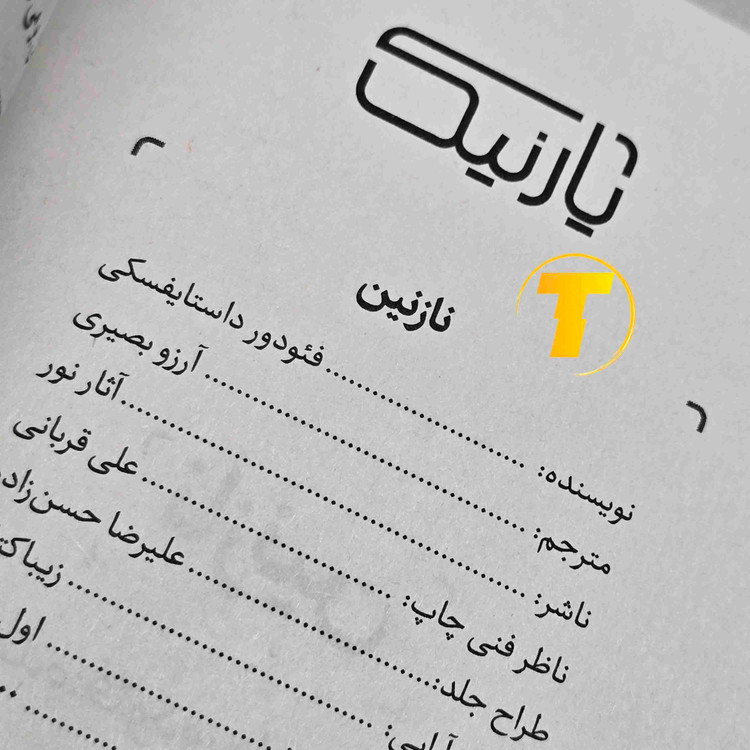 نارنیک
نازنین
T
نویسنده: فئودور داستایفسکی
مترجم: آرزو بصیری
ناشر: آثار نور
ناظر فنی چاپ: علی قربانی
طراح جلد: علیرضا حسن‌زاده
اول